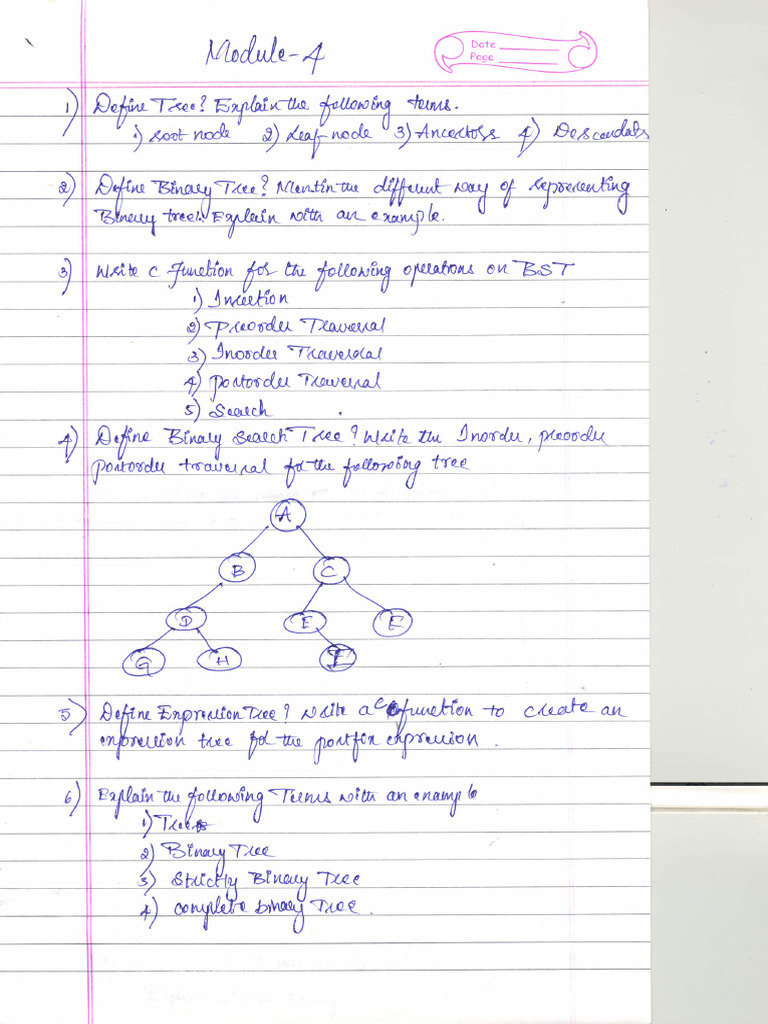 Module-4
Date
Page
1) Define Tree? Explain the following terms.
1) root node 2) Leaf node 3) Ancectors 4) Descendals
2) Define Binary Tree? Mentin the different way of representing
Binary tree. Explain with an example.
3) Write C Function for the following operations on BST
1) Incertion
2) Preorder Traversal
3) Inorder Traversal
4) postorder Traversal
5) Search
4) Define Binary Search Tree? Write the Inorder, preorder
postorder traversal for the following tree
A
B C
D E E
G H F
5) Define Expression Tree? Write a C function to create an
expression tree for the postfix expression.
6) Explain the following Terms with an example
1) Tree
2) Binary Tree
3) Strictly Binary Tree
4) complete binary Tree.